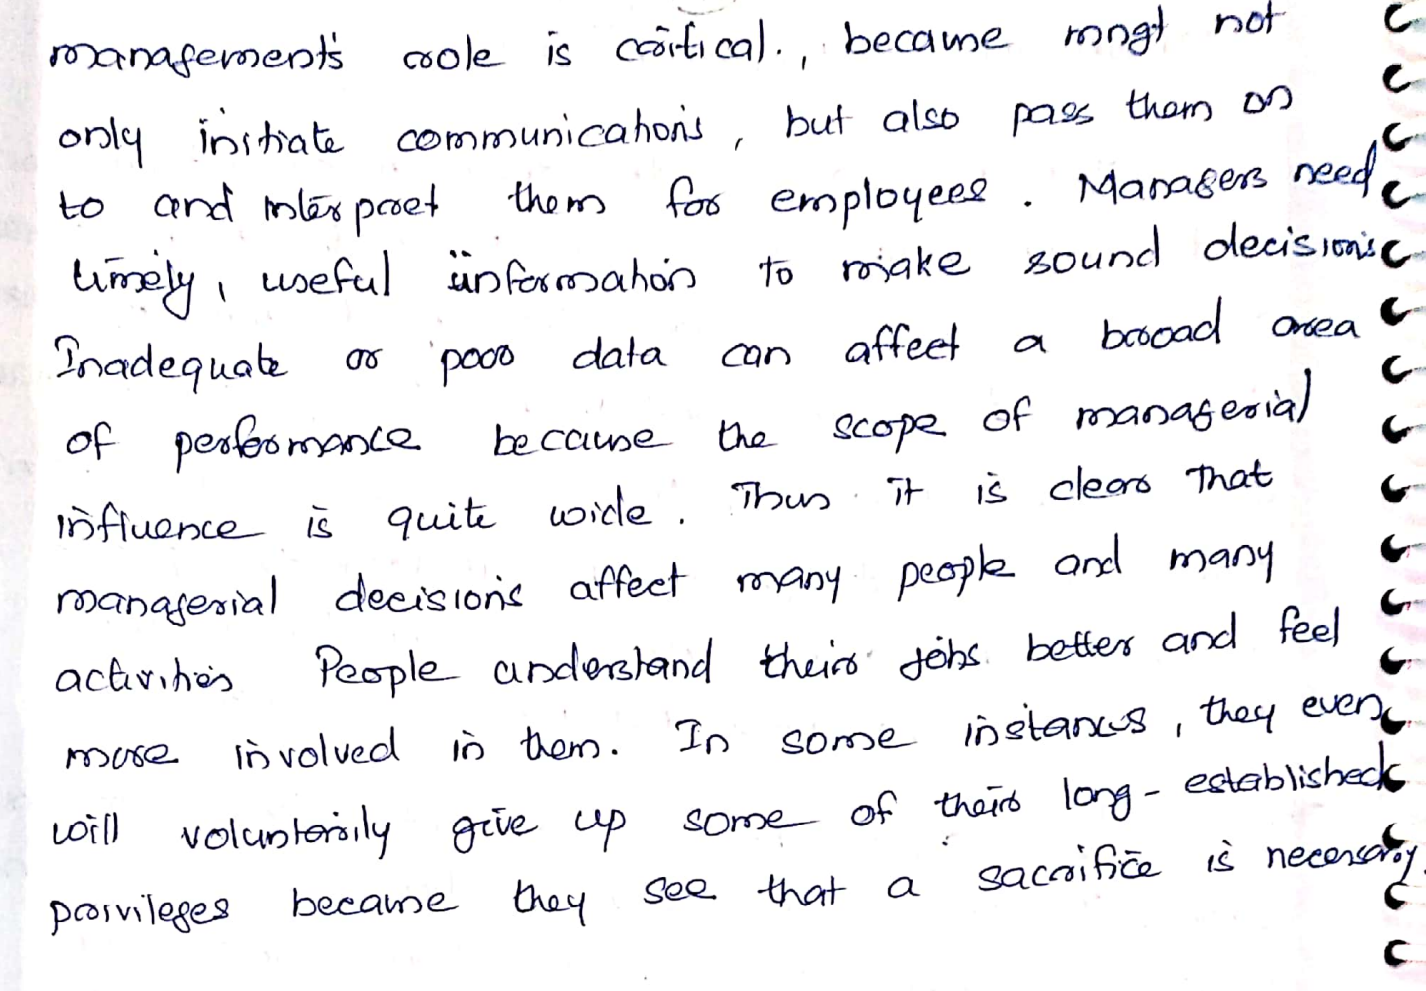 management's role is critical., because mngt not
only initiate communications, but also pass them on
to and interpret them for employees. Managers need
timely, useful information to make sound decisions
Inadequate or poor data can affect a broad area
of performance because the scope of managerial
influence is quite wide. Thus it is clear that
managerial decisions affect many people and many
activities People understand their jobs better and feel
more involved in them. In some instances, they even
will voluntarily give up some of their long-established
privileges because they see that a sacrifice is necessary.